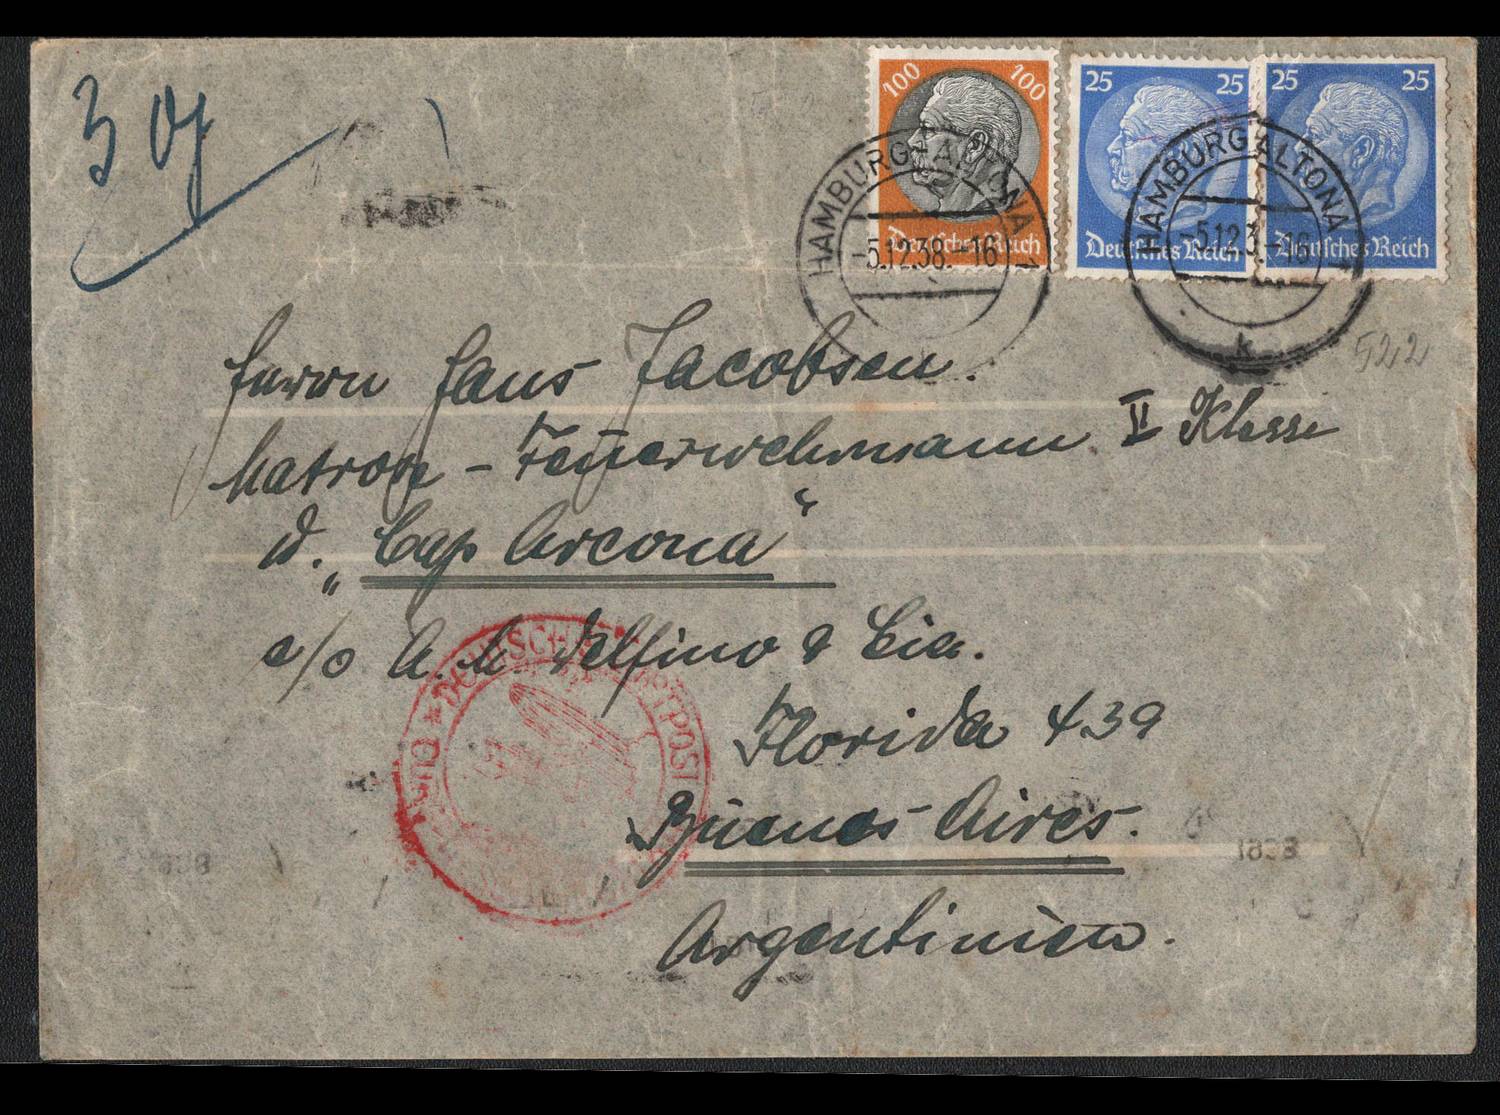 3 Of
100 100
Deutsches Reich
25 25
Deutsches Reich
25 25
Deutsches Reich
HAMBURG-ALTONA
-5.12.38.-16
HAMBURG-ALTONA
-5.12.3 .-16
k
522
Herrn Hans Jacobsen.
Matrose - Feuerwehrmann II Klasse
D. „Cap Arcona“
c/o A. M. Delfino & Cia.
Florida 439
Buenos Aires.
Argentinien.
DEUTSCHE LUFTPOST
1938